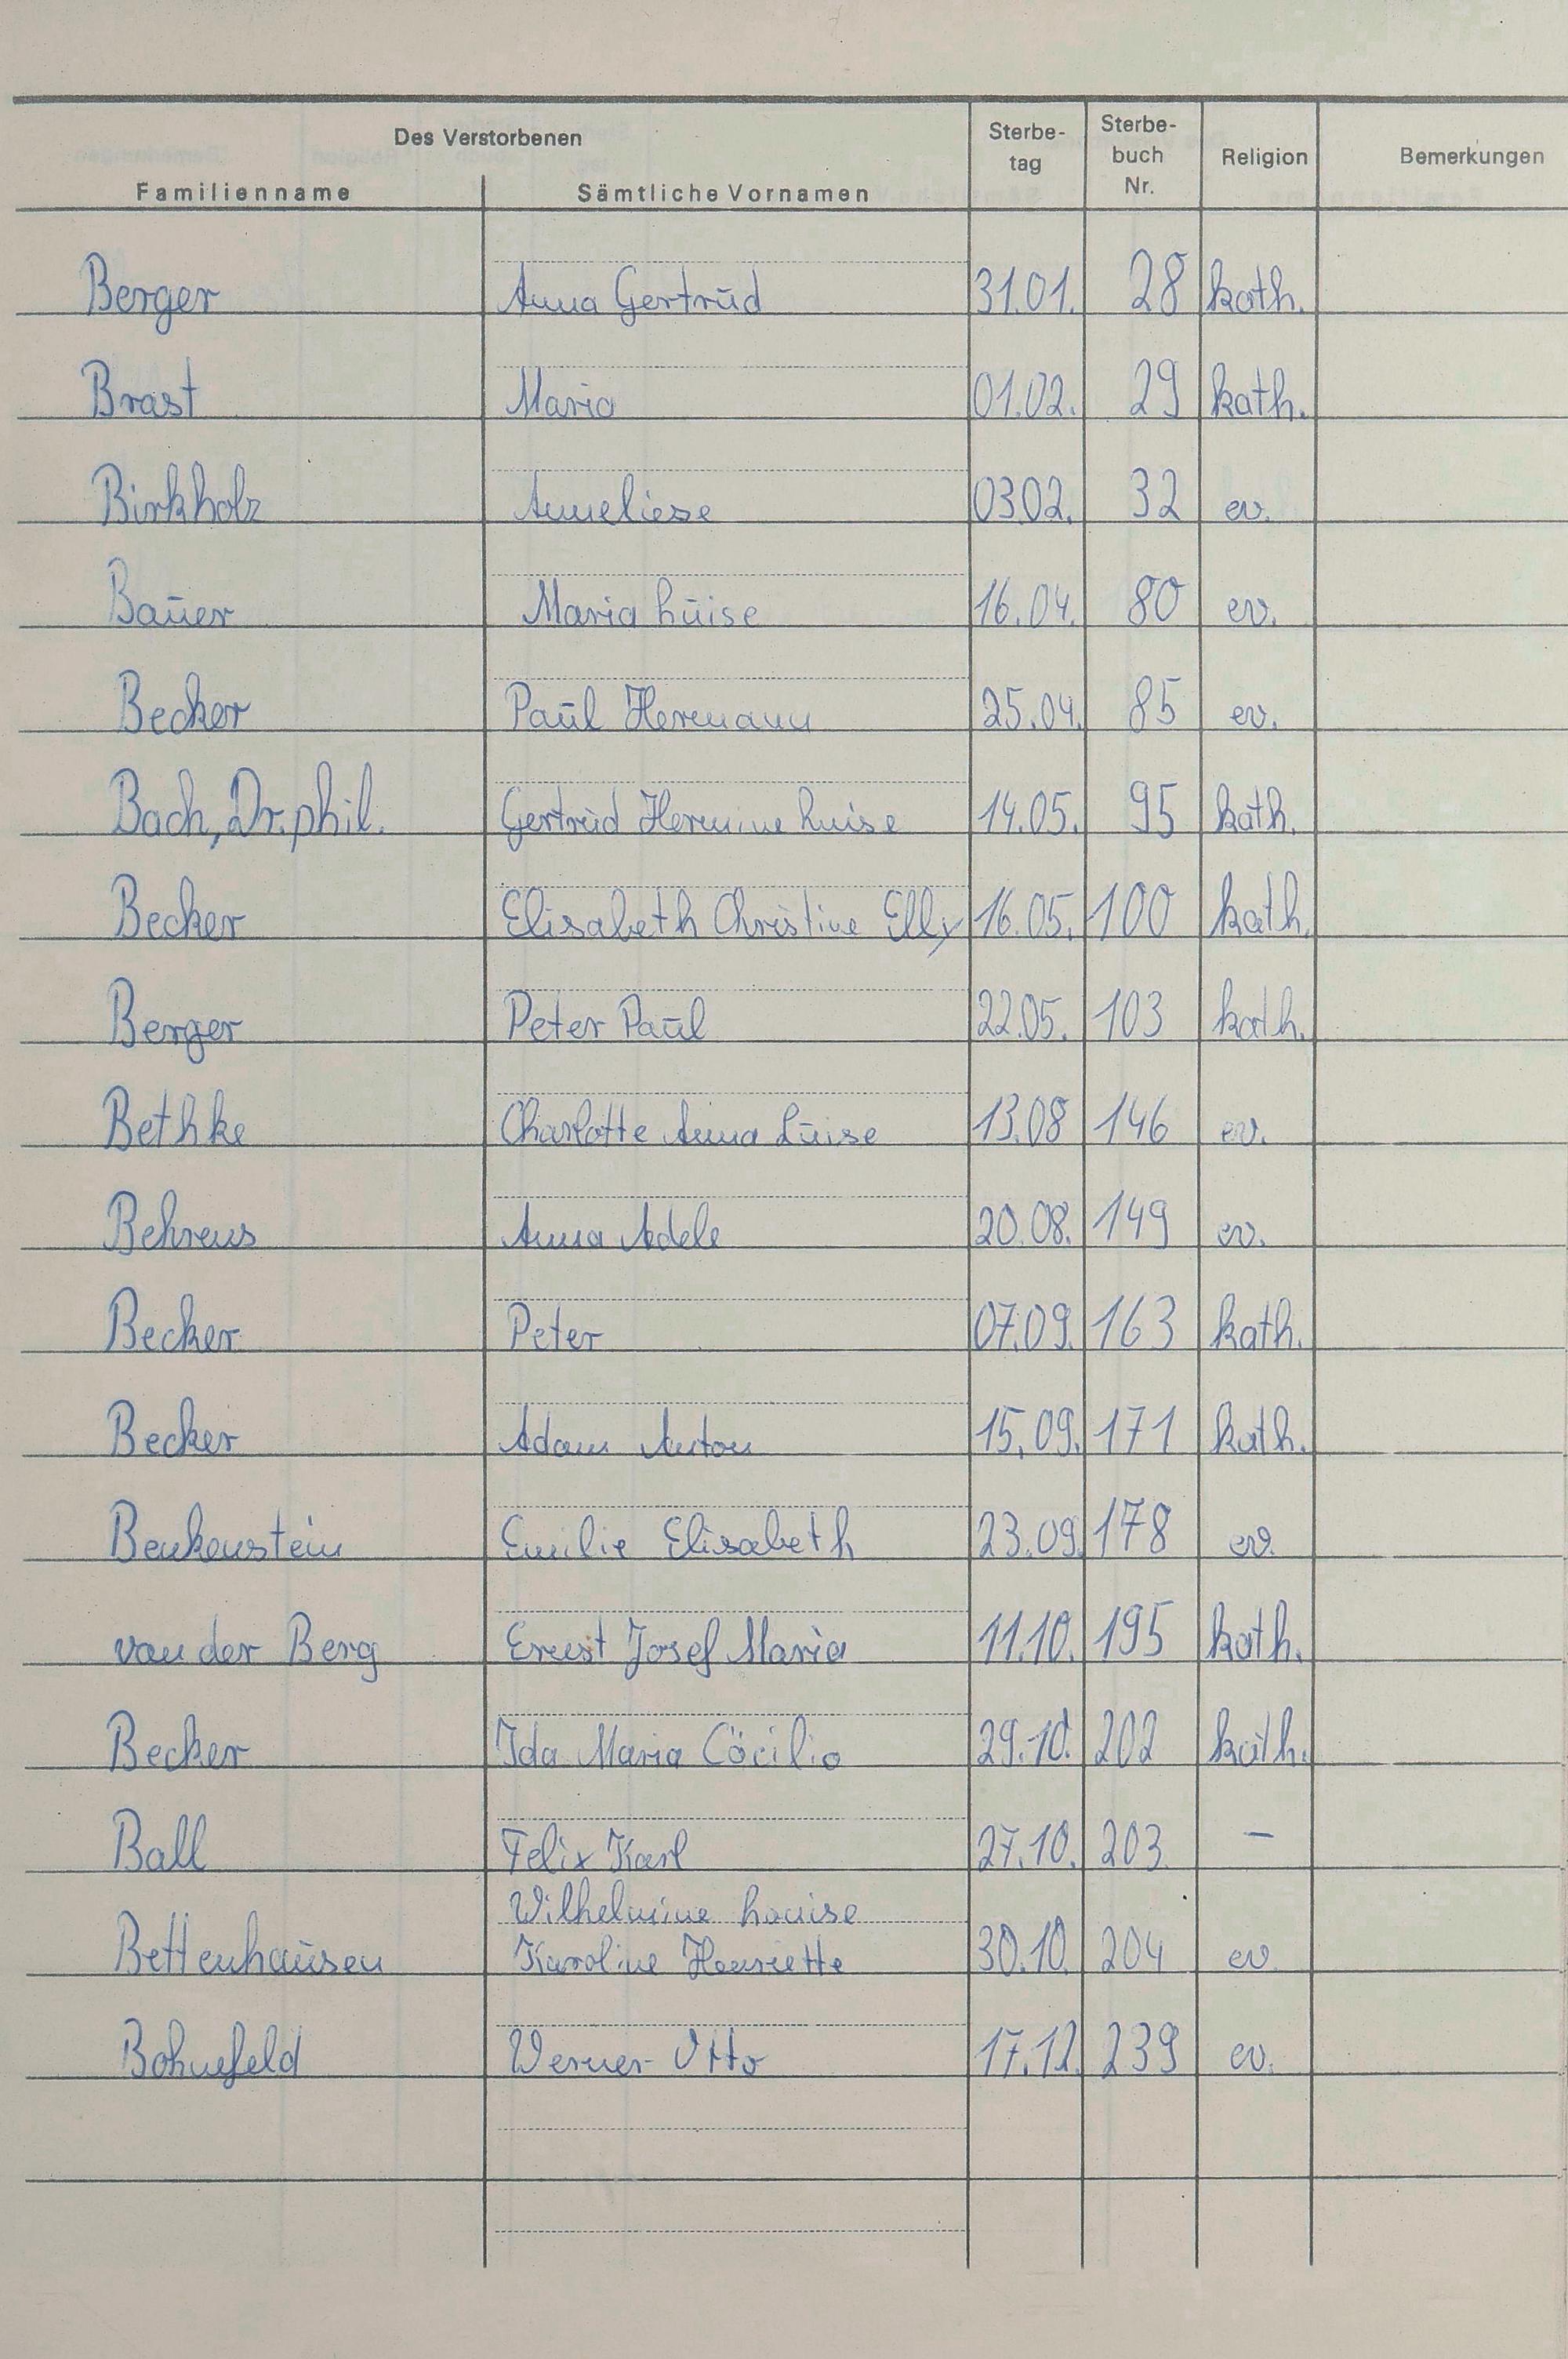 Des Verstorbenen
Familienname Sämtliche Vornamen Sterbe-tag Sterbe-buch Nr. Religion Bemerkungen
Berger Anna Gertrud 31.01. 28 kath.
Brast Maria 01.02. 29 kath.
Birkholz Anneliese 03.02. 32 ev.
Bauer Maria Luise 16.04. 80 ev.
Becker Paul Hermann 25.04. 85 ev.
Bach, Dr. phil. Gertrud Hermine Luise 14.05. 95 kath.
Becker Elisabeth Christine Elly 16.05. 100 kath.
Berger Peter Paul 22.05. 103 kath.
Bethke Charlotte Anna Luise 13.08 146 ev.
Behrens Anna Adele 20.08. 149 ev.
Becker Peter 07.09. 163 kath.
Becker Adam Anton 15.09. 171 kath.
Benkenstein Emilie Elisabeth 23.09. 178 ev.
van der Berg Ernst Josef Maria 11.10. 195 kath.
Becker Ida Maria Cäcilia 29.10. 202 kath.
Ball Felix Karl 27.10. 203 –
Wilhelmine Louise
Bettenhausen Karoline Henriette 30.10. 204 ev
Bohnefeld Werner Otto 17.12. 239 ev.